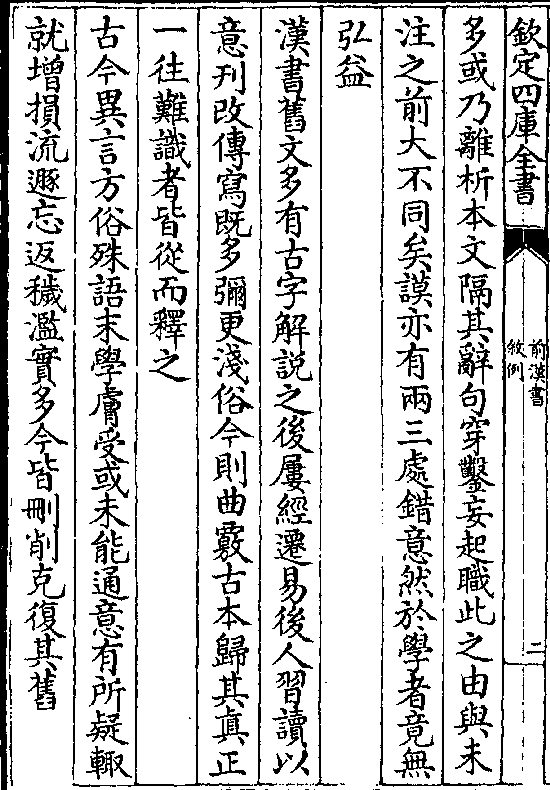 欽定四庫全書
前漢書
敘例
二
多或乃離析本文隔其辭句穿鑿妄起職此之由與未
注之前大不同矣謨亦有兩三處錯意然於學者竟無
弘益
漢書舊文多有古字解説之後屢經遷易後人習讀以
意刊改傳寫既多彌更淺俗今則曲覈古本歸其真正
一往難識者皆從而釋之
古今異言方俗殊語末學膚受或未能通意有所疑輙
就增損流遯忘返穢濫實多今皆刪削克復其舊